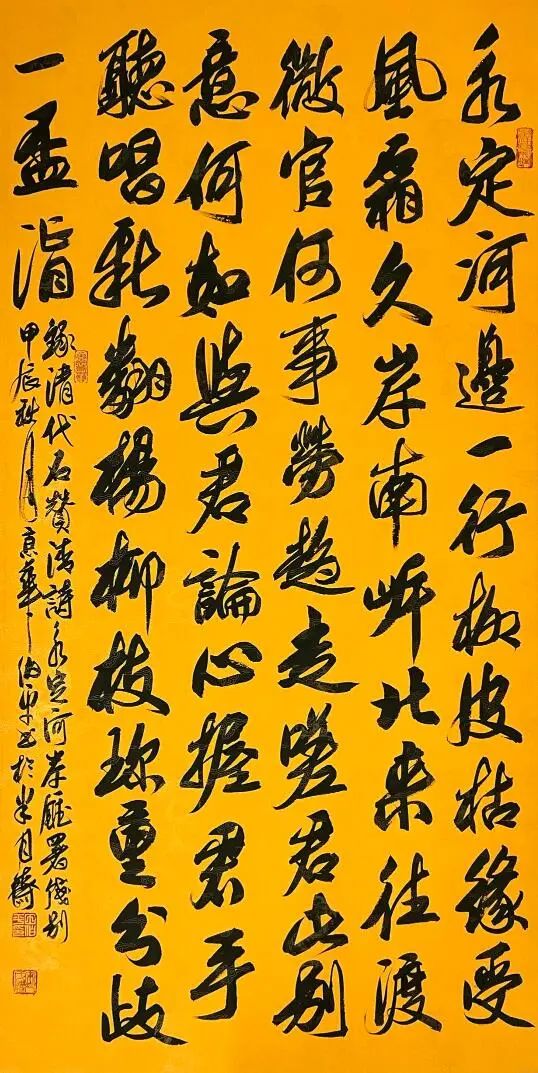 永定河邊一行柳皮枯緣受
風霜久岸南岸北来往渡
微官何事勞趨走嗟君此别
意何如與君論心握君手
聽唱新翻楊柳枝珍重分歧
一盃湑
錄清代石贊清詩永定河岸廳署餞别
甲辰秋月京華書於半月齋